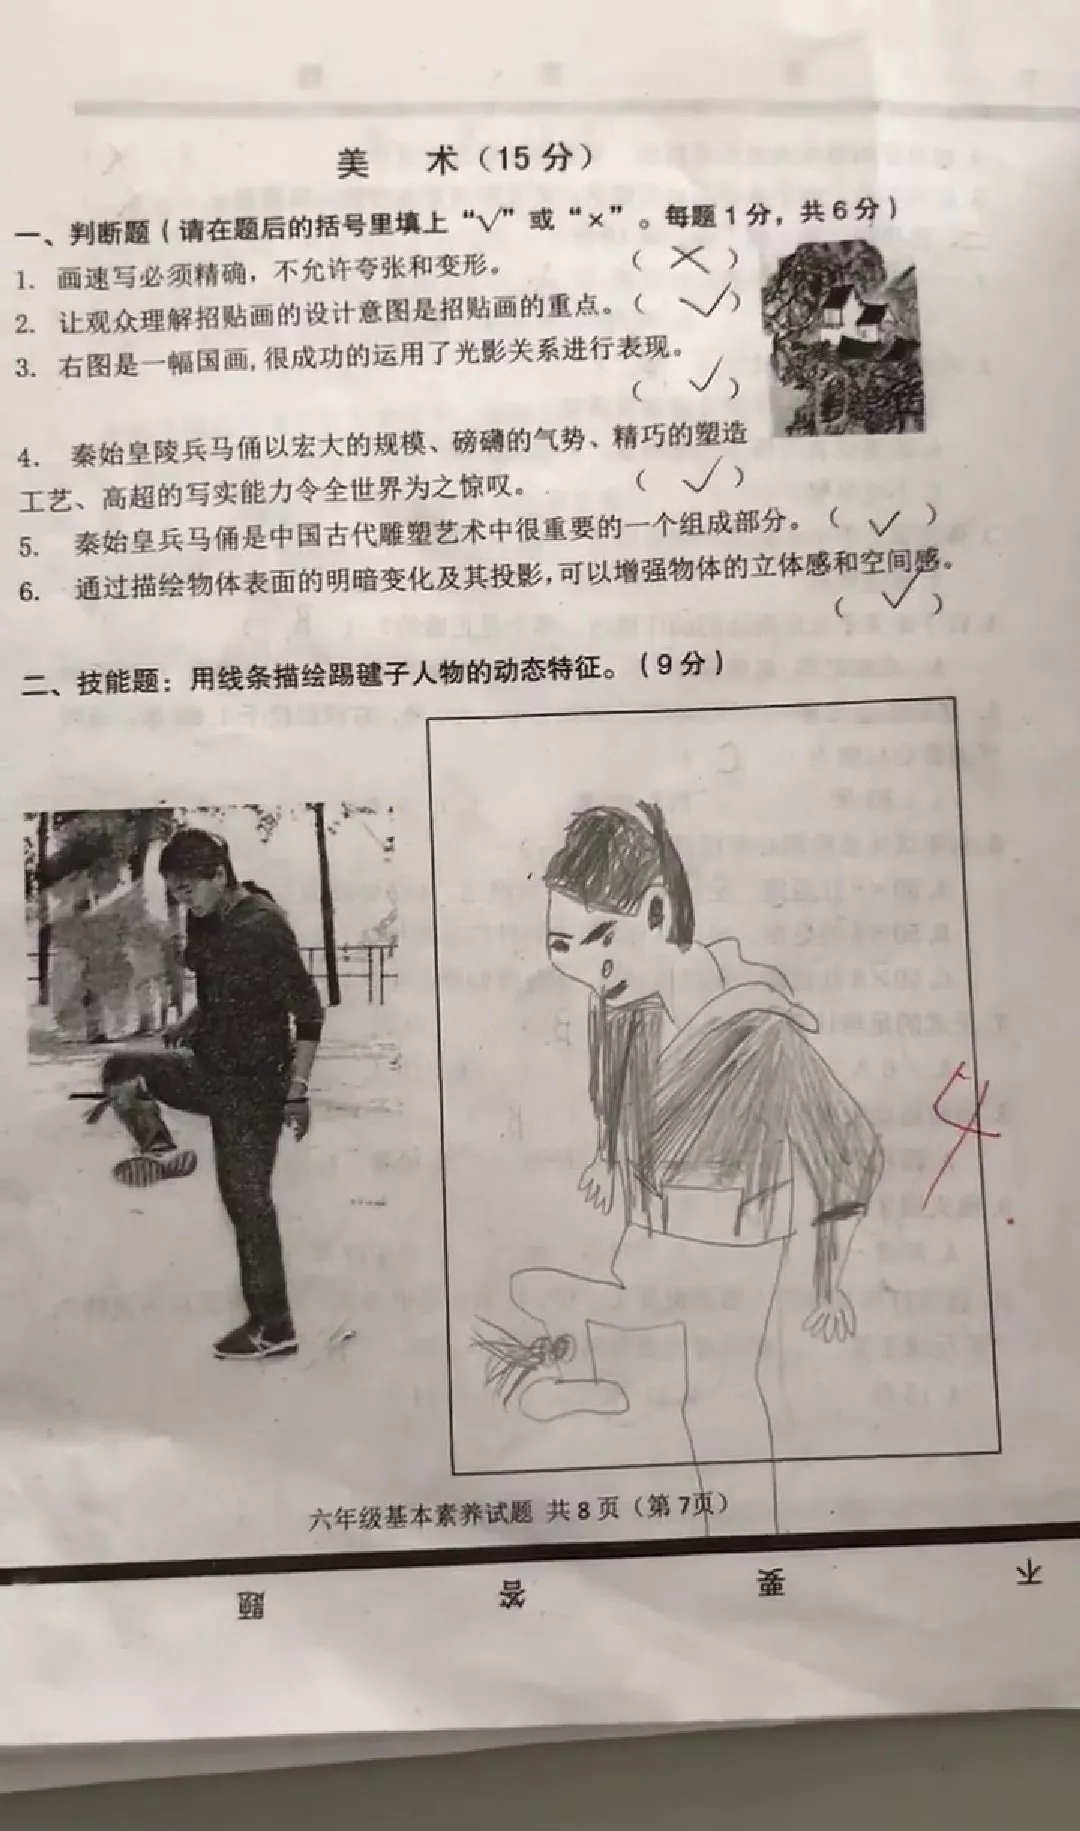 美 术（15 分）
一、判断题（请在题后的括号里填上“√”或“×”。每题 1 分，共 6 分）
1. 画速写必须精确，不允许夸张和变形。 （ × ）
2. 让观众理解招贴画的设计意图是招贴画的重点。（ √ ）
3. 右图是一幅国画，很成功的运用了光影关系进行表现。
（ √ ）
4. 秦始皇陵兵马俑以宏大的规模、磅礴的气势、精巧的塑造
工艺、高超的写实能力令全世界为之惊叹。 （ √ ）
5. 秦始皇兵马俑是中国古代雕塑艺术中很重要的一个组成部分。（ √ ）
6. 通过描绘物体表面的明暗变化及其投影，可以增强物体的立体感和空间感。
（ √ ）
二、技能题：用线条描绘踢毽子人物的动态特征。（9 分）
4
六年级基本素养试题 共 8 页（第 7页）
题 答 要 不